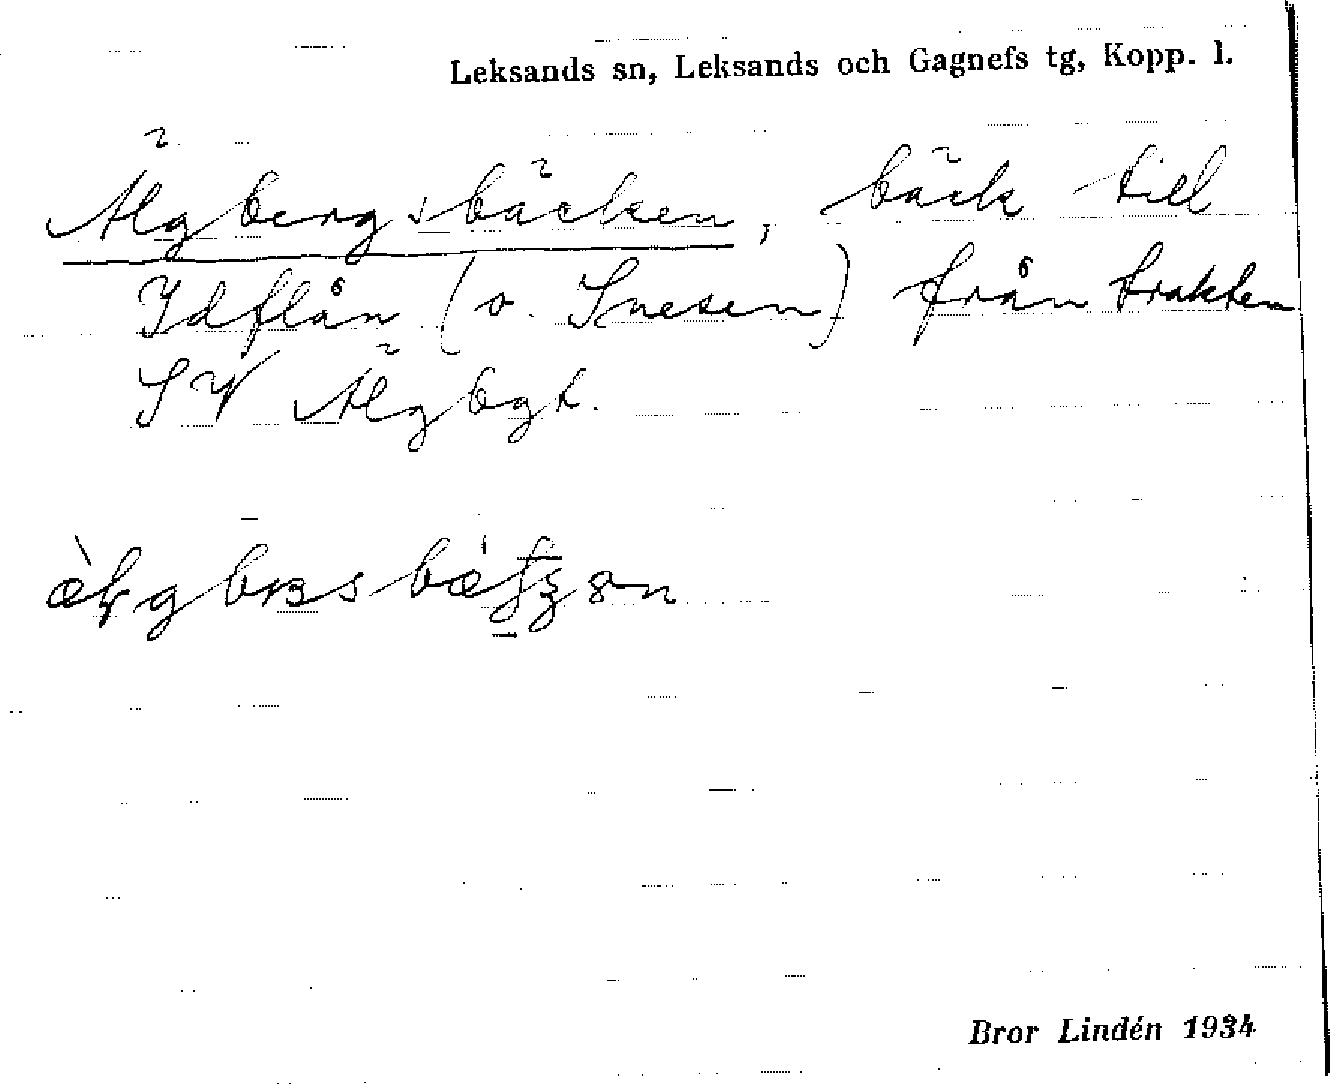 Leksands sn, Leksands och Gagnefs tg, Kopp. l.
Älgbergsbäcken, bäck till
Idflån (o. Snesen) från trakten
SV Älgbgt.
Bror Lindén 1934